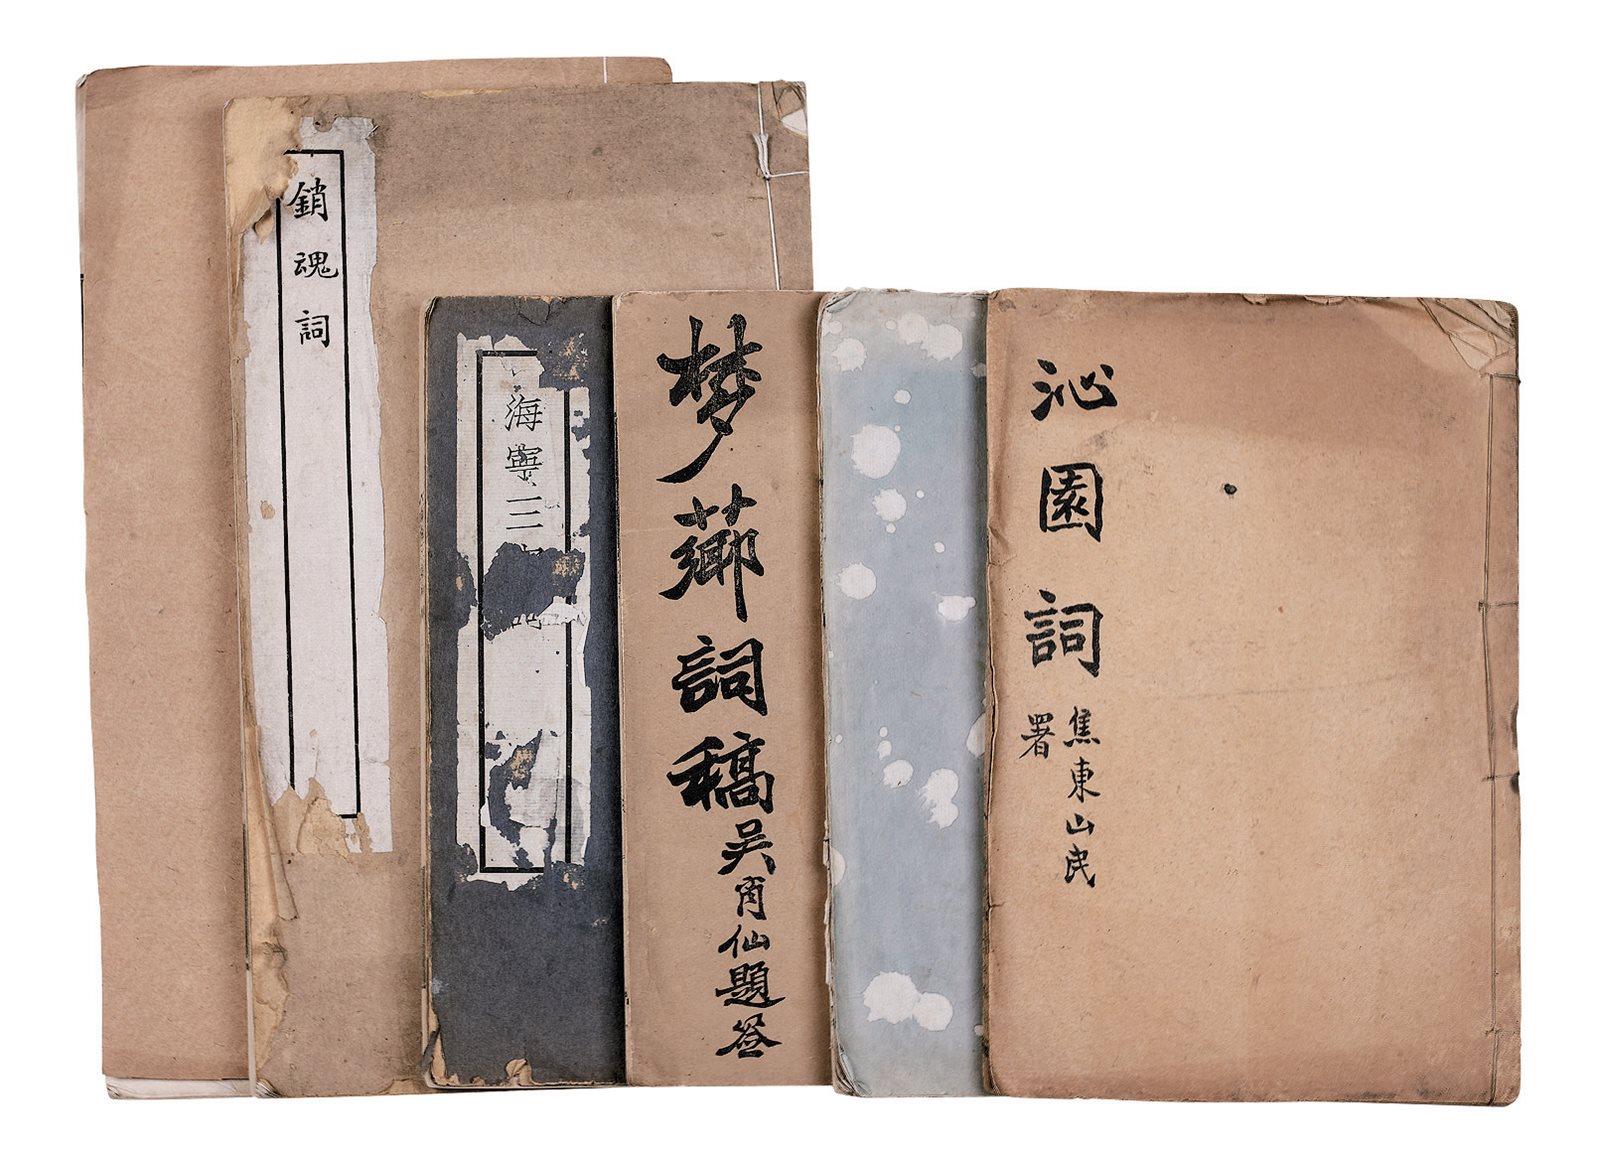 銷魂詞
海寧三
梦薌詞稿
吴肖仙題签
沁園詞
焦東山民
署